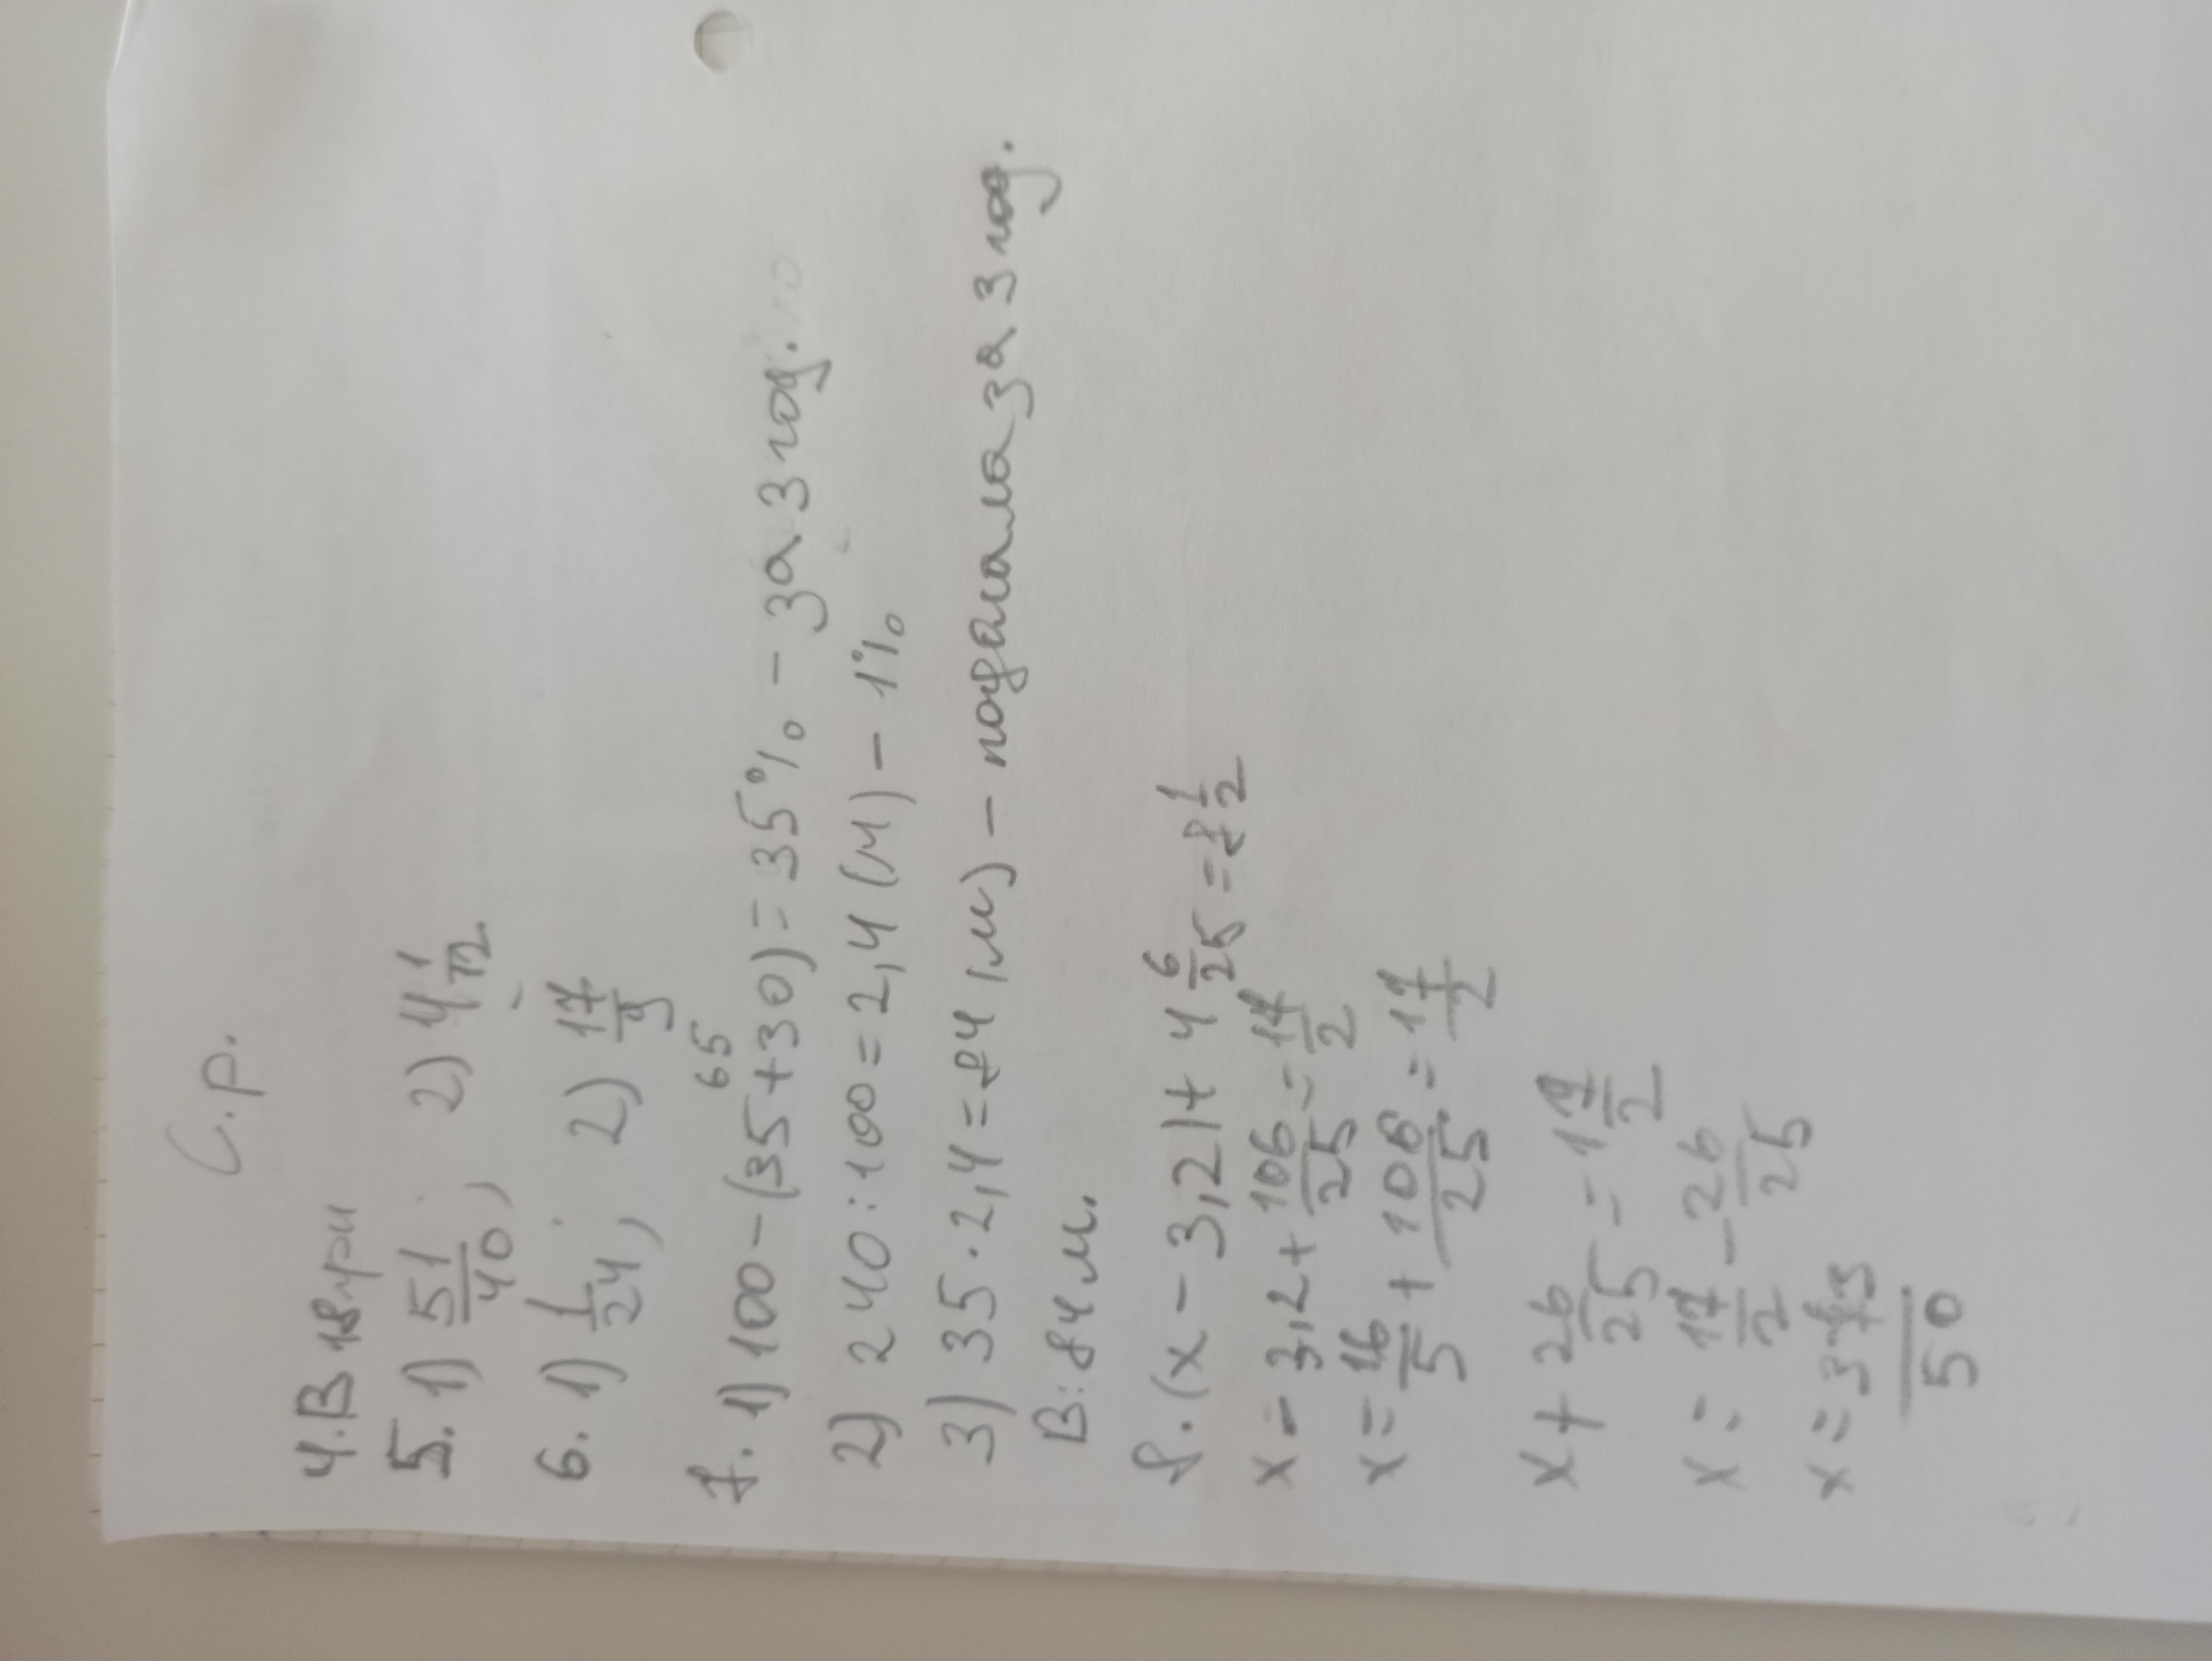 С.р.
4. В 18 гри
5. 1) 51/40; 2) 4 1/12
6. 1) 1/24; 2) 17/9
65
7. 1) 100-(35+30)=35% - за 3 год.
2) 240:100=2,4(м) - 1%
3) 35·2,4=84(м) - подолала за 3 год.
В: 84 м.
8. (x-3,2)+4 6/25=8 1/2
x-3,2+106/25=17/2
x=16/5+106/25=17/2
x+26/25=17/2
x=17/2-26/25
x=373/50